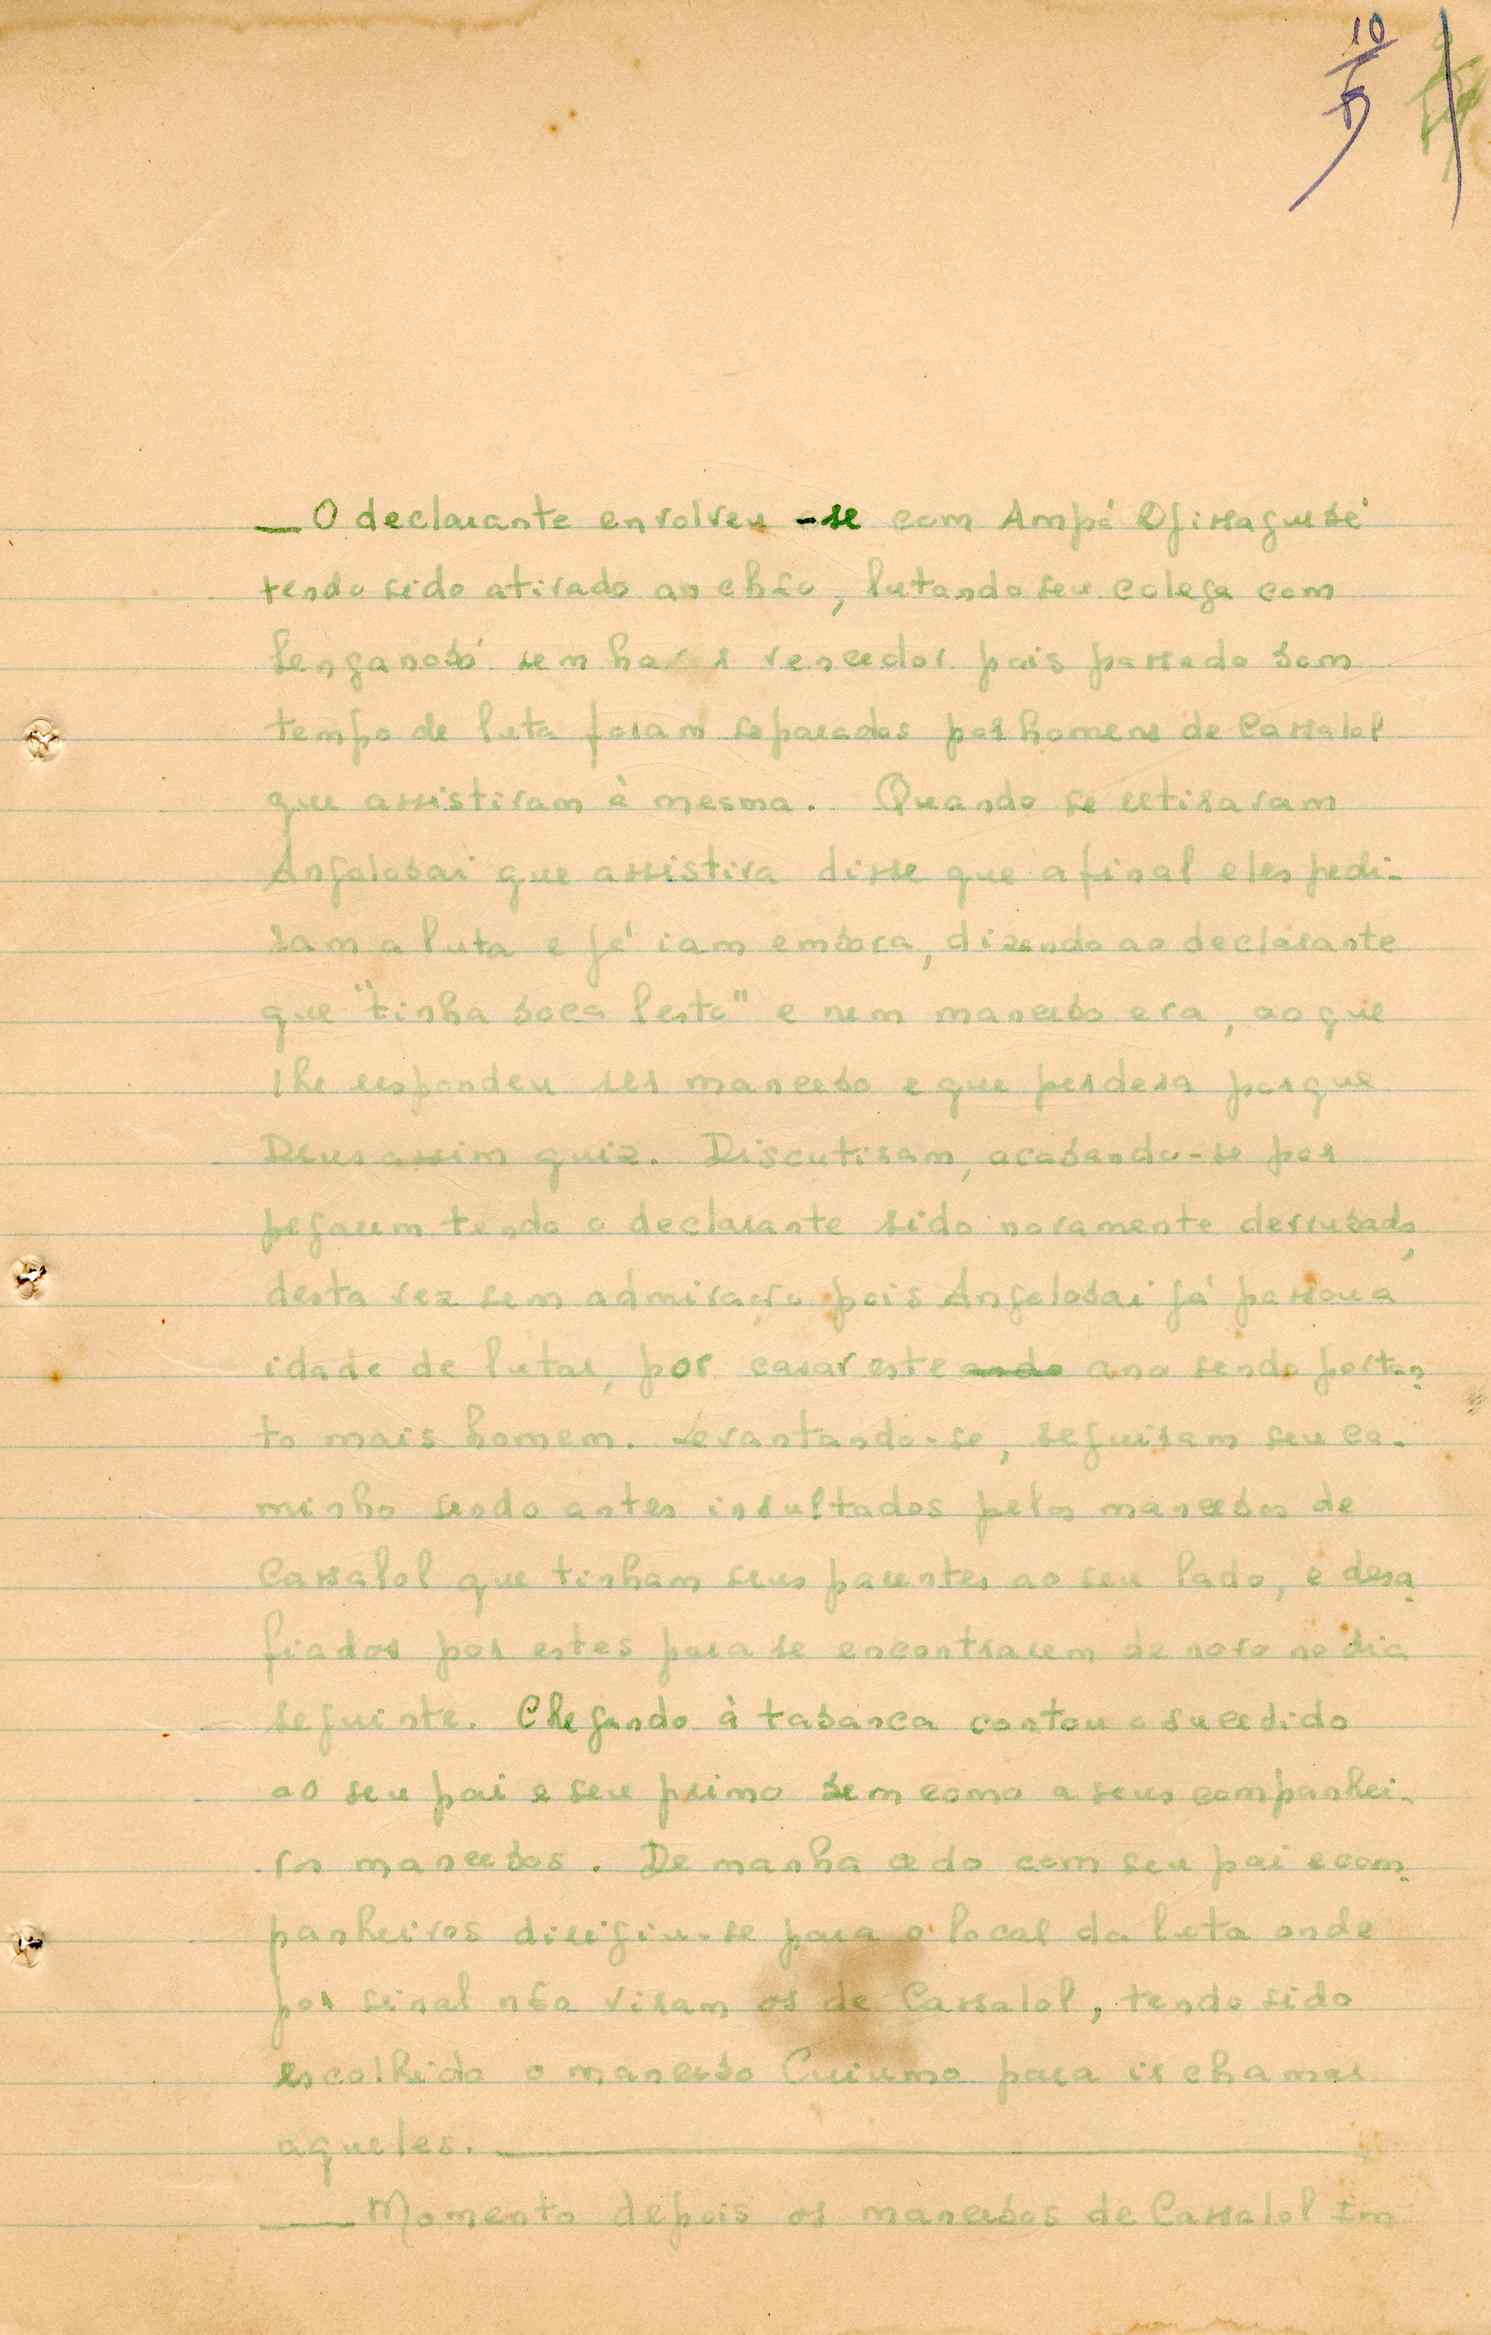 10
— O declarante envolveu-se com Ampá Djissaguibé
tendo sido atirado ao chão, lutando seu colega com
sem haver vencedor pois passado bom
tempo de luta foram separados por homens de Cassalol
que assistiram à mesma. Quando se retiraram
Angolobai que assistira disse que afinal eles pedi-
ram a luta e já iam embora, dizendo ao declarante
que "tinha boca lesto" e nem mancebo era, ao que
lhe respondeu ser mancebo e que perdera porque
Deus assim quiz. Discutiram, acabando-se por
pegarem tendo o declarante sido novamente derrubado,
desta vez sem admiração pois Angolobai já passou a
idade de lutar, por casar este ano sendo portan-
to mais homem. Levantando-se, seguiram seu ca-
minho sendo antes insultados pelos mancebos de
Cassalol que tinham seus parentes ao seu lado, e desa-
fiados por estes para se encontrarem de novo no dia
seguinte. Chegando à tabanca contou o sucedido
ao seu pai e seu primo bem como a seus companhei-
ros mancebos. De manha cedo com seu pai e com-
panheiros dirigiu-se para o local da luta onde
por sinal não viram os de Cassalol, tendo sido
escolhido o mancebo Cuiumo para ir chamar
aqueles.
— Momento depois os mancebos de Cassalol em